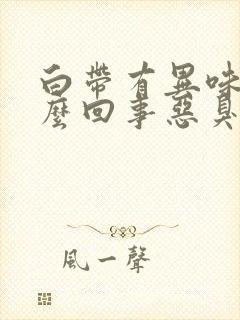 白帶有異味
麼回事惡臭
風一聲